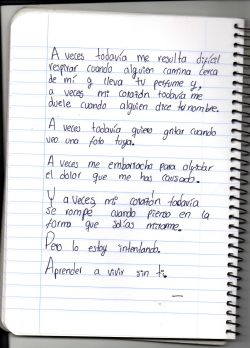 A veces todavía me resulta difícil
respirar cuando alguien camina cerca
de mí y lleva tu perfume y,
a veces mi corazón todavía me
duele cuando alguien dice tu nombre.
A veces todavía quiero gritar cuando
veo una foto tuya.
A veces me emborracho para olvidar
el dolor que me has causado.
Y a veces, mi corazón todavía
se rompe cuando pienso en la
forma que solías mirarme.
Pero lo estoy intentando.
Aprender a vivir sin ti.